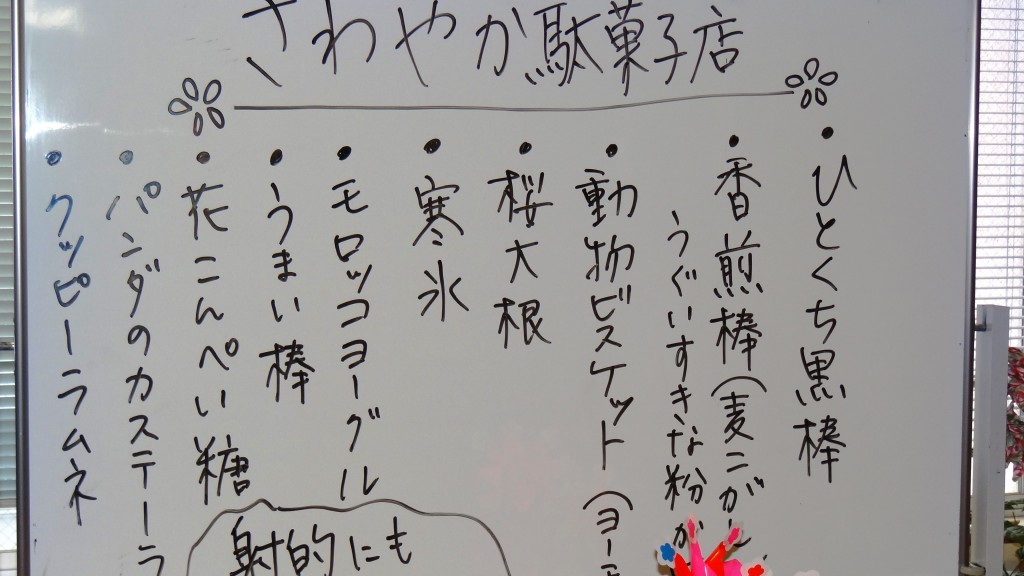 さわやか駄菓子店
・ひとくち黒棒
・香煎棒(麦こがし
うぐいすきな粉が
・動物ビスケット(ヨー
・桜大根
・寒氷
・モロッコヨーグル
・うまい棒
・花こんぺい糖
・パンダのカステーラ
・クッピーラムネ
射的にも